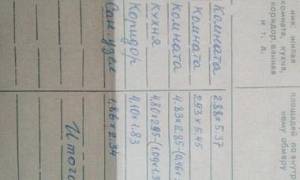 ния: жилая
комната, кухня,
коридор, ванная
и т. д.
площадей по внут-
нему обмеру
Комната
2.88 х 5.37
Комната
2.93 х 5.45
Комната
4.83 х 2.85 -
Кухня
4.80 х 2.95 -
Коридор
4.10 х 1.83
Сан. узел
1.86 х 2.34
Итого